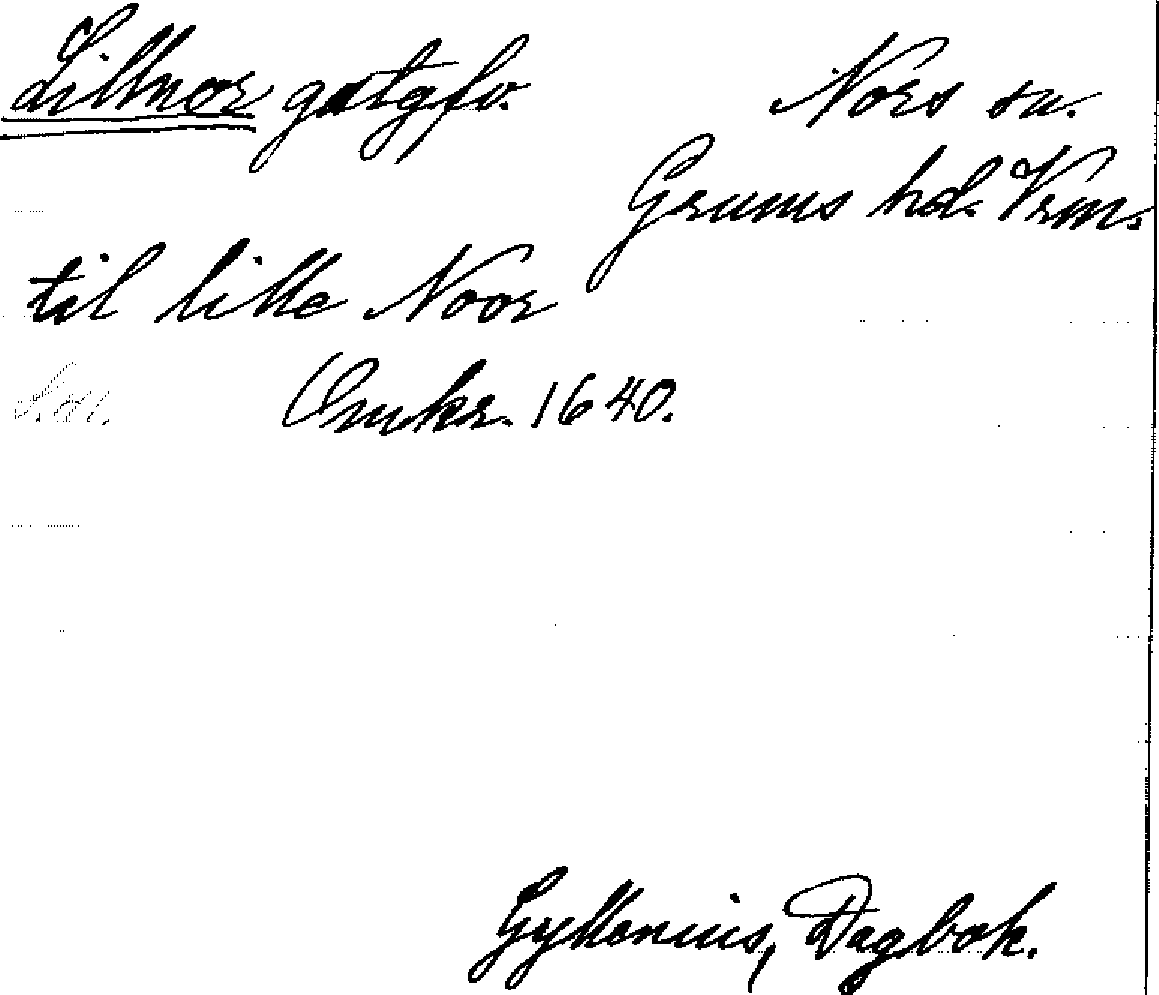 Lillnor gästgfv. Nors sn.
Grums hd. Vrm.
til lille Noor
Omkr. 1640.
Gyllenius, Dagbok.